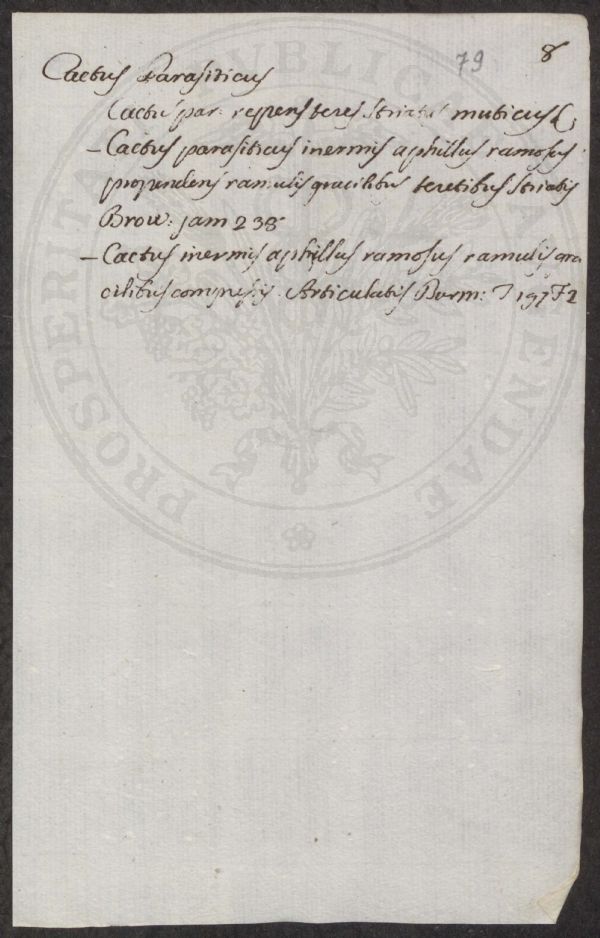 79
8
Cactus Parasiticus
Cactus par: repens teres striatus muticus
– Cactus parasiticus inermis aphillus ramosus
propendens ramulis gracilibus teretibus striatis
Brow: jam 238
– Cactus inermis aphyllus ramosus ramulis gra
cilibus compressis Articulatis Burm: T 197 F 2
PROSPERITATI PUBLICAE AUGENDAE